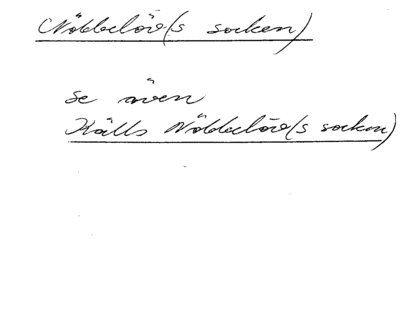 Nöbbelöv(s socken)
se även
Källs Nöbbelöv(s socken)